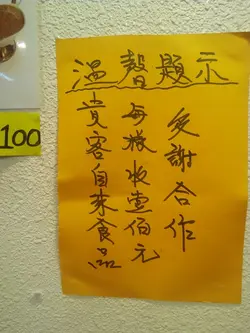 溫馨題示
貴客自來食品
每樣收壹佰元
多謝合作
100